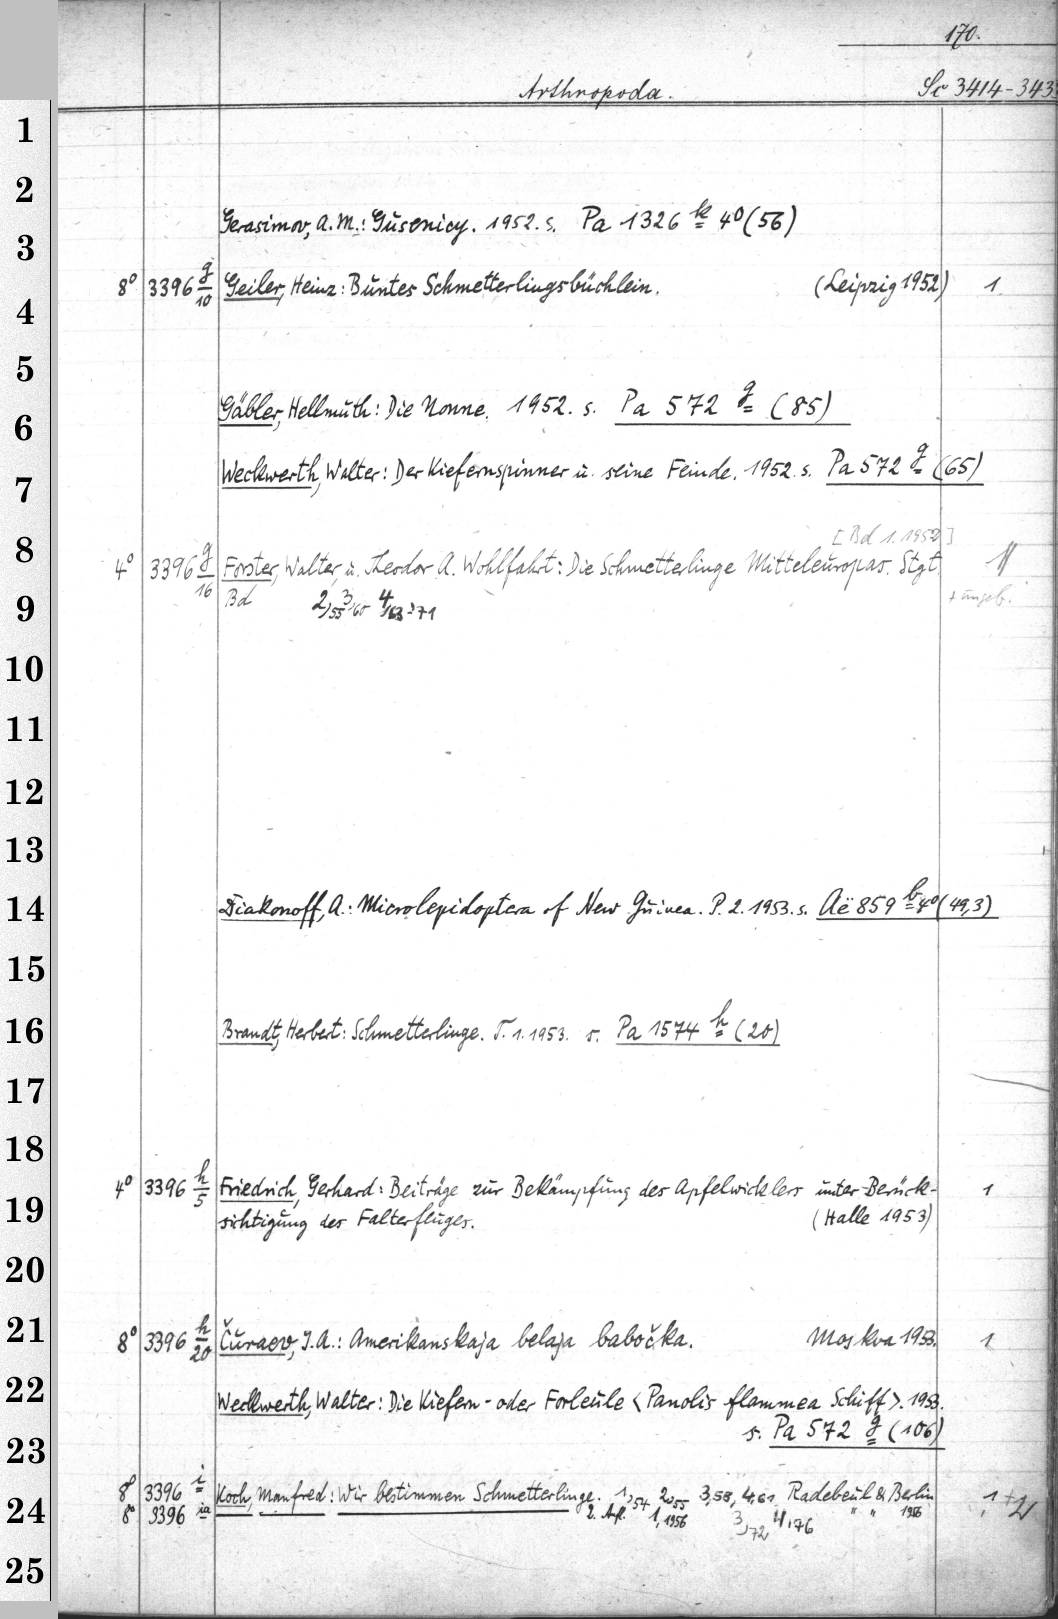 170.
Arthropoda. Sc 3414-343
1
2
Gerasimov, A. M.: Gusenicy. 1952. s. Pa 1326 k 4° (56)
3
8° 3396 g/10 Geiler, Heinz: Buntes Schmetterlingsbüchlein. (Leipzig 1952) 1
4
5
Gäbler, Hellmuth: Die Nonne. 1952. s. Pa 572 g (85)
6
Weckwerth, Walter: Der Kiefernspinner u. seine Feinde. 1952. s. Pa 572 g (65)
7
[Bd 1. 1952]
8
4° 3396 g/16 Forster, Walter, u. Theodor A. Wohlfahrt: Die Schmetterlinge Mitteleuropas. Stgt.
Bd 2,55 3,60 4,63-71 + ungeb.
9
10
11
12
13
Diakonoff, A.: Microlepidoptera of New Guinea. P. 2. 1953. s. Aë 859 b 4° (49,3)
14
15
Brandt, Herbert: Schmetterlinge. T. 1. 1953. s. Pa 1574 h (20)
16
17
18
4° 3396 h/5 Friedrich, Gerhard: Beiträge zur Bekämpfung des Apfelwicklers unter Berück- 1
19
sichtigung des Falterfluges. (Halle 1953)
20
21
8° 3396 h/20 Čuraev, I. A.: Amerikanskaja belaja babočka. Moskva 1953. 1
22
Weckwerth, Walter: Die Kiefern- oder Forleule <Panolis flammea Schiff>. 1953.
s. Pa 572 g (106)
23
8° 3396 i Koch, Manfred: Wir bestimmen Schmetterlinge. 1,54 2,55 3,58, 4,61 Radebeul & Berlin 1 + 2
24
8° 3396 ia 2. Aufl. 1,1956 3,72, 4,76 " " 1956
25